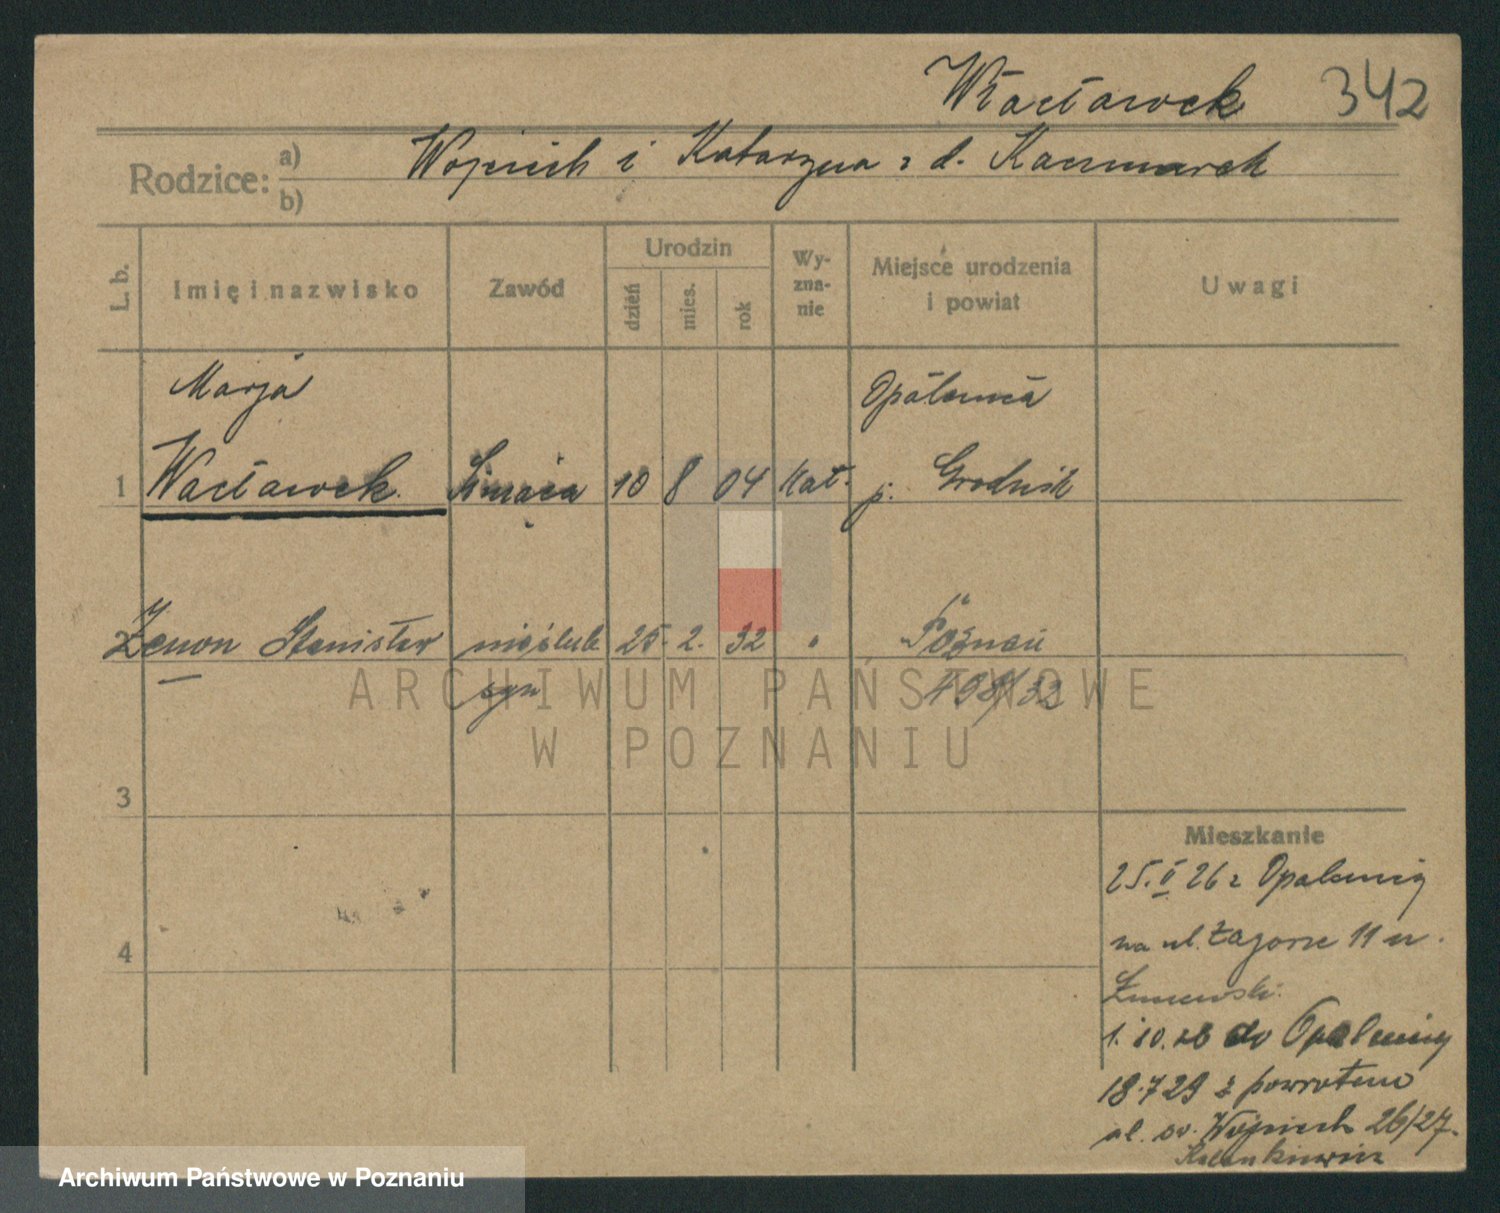 Wacławek 342
Rodzice: a) Wojciech i Katarzyna z d. Kaczmarek
b)
L. b. Imię i nazwisko Zawód Urodzin dzień mies. rok Wy-zna-nie Miejsce urodzenia i powiat Uwagi
Marja Opalenica
1 Wacławek. 10 8 04 kat. p. Grodzisk
2 Zenon Stanisław nieślub. 25. 2. 32 " Poznań
syn 498/32
ARCHIWUM PAŃSTWOWE
W POZNANIU
3
4
Mieszkanie
25. V 26 z Opalenicy
na ul. Zagorze 11 u.
1. 10. 26 do Opalenicy
18.7 29 z powrotem
ul. św. Wojciech 26/27.
Archiwum Państwowe w Poznaniu